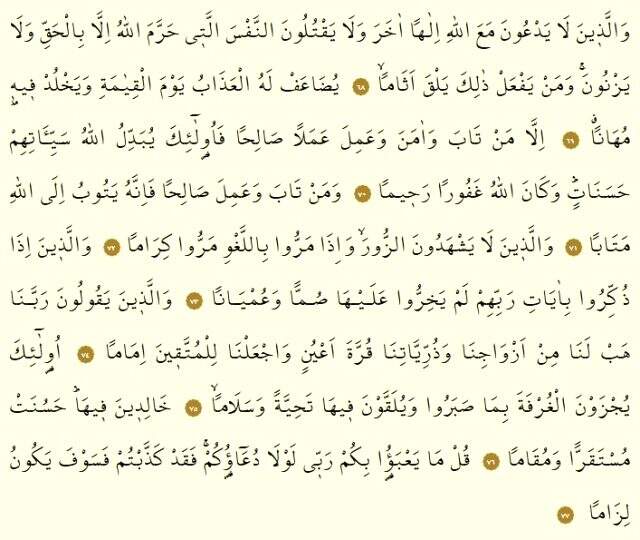 وَالَّذٖينَ لَا يَدْعُونَ مَعَ اللّٰهِ اِلٰهًا اٰخَرَ وَلَا يَقْتُلُونَ النَّفْسَ الَّتٖى حَرَّمَ اللّٰهُ اِلَّا بِالْحَقِّ وَلَا
يَزْنُونَۚ وَمَنْ يَفْعَلْ ذٰلِكَ يَلْقَ اَثَامًاۙ ٦٨ يُضَاعَفْ لَهُ الْعَذَابُ يَوْمَ الْقِيٰمَةِ وَيَخْلُدْ فٖيهٖ
مُهَانًاۗ ٦٩ اِلَّا مَنْ تَابَ وَاٰمَنَ وَعَمِلَ عَمَلًا صَالِحًا فَاُولٰٓئِكَ يُبَدِّلُ اللّٰهُ سَيِّئَاتِهِمْ
حَسَنَاتٍؕ وَكَانَ اللّٰهُ غَفُورًا رَحٖيمًا ٧٠ وَمَنْ تَابَ وَعَمِلَ صَالِحًا فَاِنَّهُ يَتُوبُ اِلَى اللّٰهِ
مَتَابًا ٧١ وَالَّذٖينَ لَا يَشْهَدُونَ الزُّورَۙ وَاِذَا مَرُّوا بِاللَّغْوِ مَرُّوا كِرَامًا ٧٢ وَالَّذٖينَ اِذَا
ذُكِّرُوا بِاٰيَاتِ رَبِّهِمْ لَمْ يَخِرُّوا عَلَيْهَا صُمًّا وَعُمْيَانًا ٧٣ وَالَّذٖينَ يَقُولُونَ رَبَّنَا
هَبْ لَنَا مِنْ اَزْوَاجِنَا وَذُرِّيَّاتِنَا قُرَّةَ اَعْيُنٍ وَاجْعَلْنَا لِلْمُتَّقٖينَ اِمَامًا ٧٤ اُولٰٓئِكَ
يُجْزَوْنَ الْغُرْفَةَ بِمَا صَبَرُوا وَيُلَقَّوْنَ فٖيهَا تَحِيَّةً وَسَلَامًاۙ ٧٥ خَالِدٖينَ فٖيهَاؕ حَسُنَتْ
مُسْتَقَرًّا وَمُقَامًا ٧٦ قُلْ مَا يَعْبَؤُا بِكُمْ رَبّٖى لَوْلَا دُعَاؤُ۬كُمْۚ فَقَدْ كَذَّبْتُمْ فَسَوْفَ يَكُونُ
لِزَامًا ٧٧